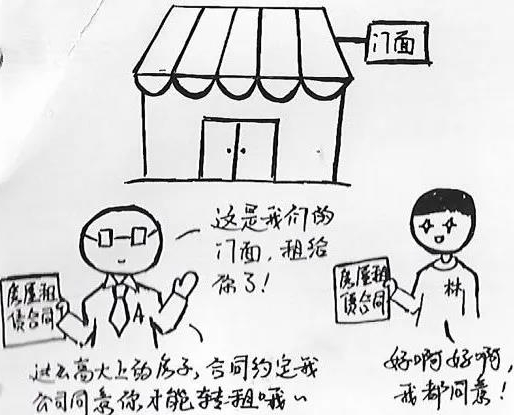 门面
这是我们的
门面，租给
你了！
房屋租
赁合同
A
这么高大上的房子，合同约定我
公司同意你才能转租哦~
房屋租
赁合同
林
好啊好啊，
我都同意！